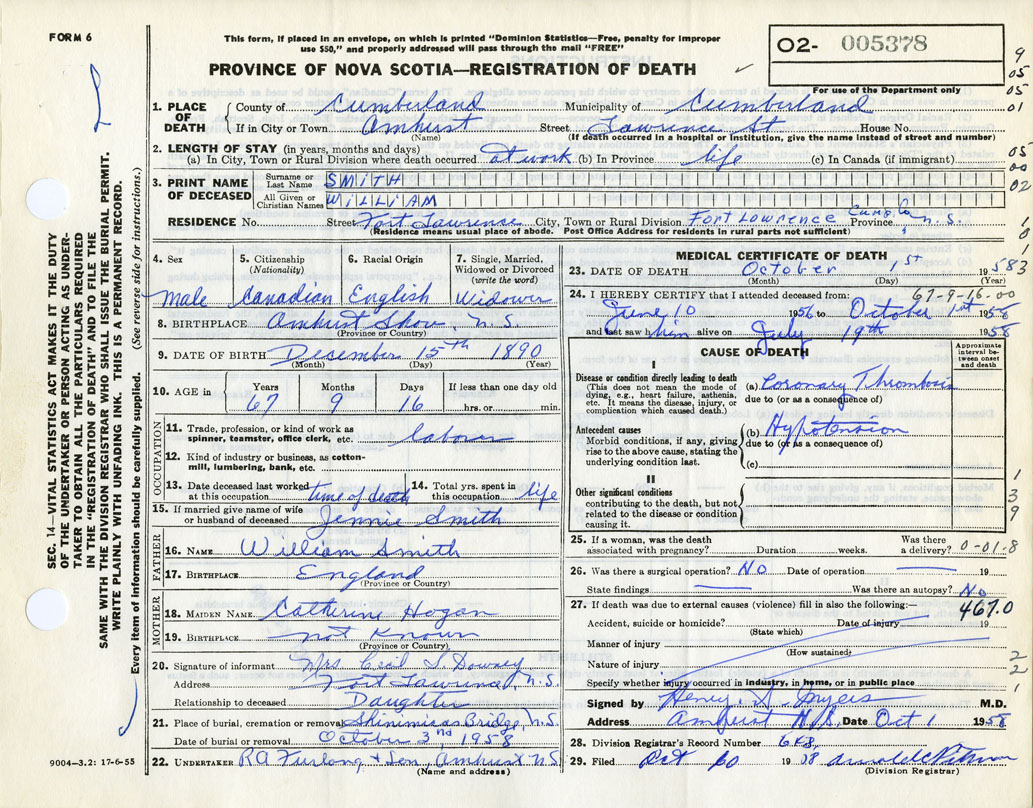 FORM 6
This form, if placed in an envelope, on which is printed "Dominion Statistics—Free, penalty for improper
use $50," and properly addressed will pass through the mail "FREE"
PROVINCE OF NOVA SCOTIA—REGISTRATION OF DEATH
O2- 005378
For use of the Department only
9
05
05
01
05
00
02
0
SEC. 14—VITAL STATISTICS ACT MAKES IT THE DUTY
OF THE UNDERTAKER OR PERSON ACTING AS UNDER-
TAKER TO OBTAIN ALL THE PARTICULARS REQUIRED
IN THE "REGISTRATION OF DEATH" AND TO FILE THE
SAME WITH THE DIVISION REGISTRAR WHO SHALL ISSUE THE BURIAL PERMIT.
WRITE PLAINLY WITH UNFADING INK. THIS IS A PERMANENT RECORD.
Every item of information should be carefully supplied. (See reverse side for instructions.)
1. PLACE OF DEATH
County of Cumberland Municipality of Cumberland
If in City or Town Amhurst Street Lawrence St House No.
(Name) (If death occurred in a hospital or Institution, give the name instead of street and number)
2. LENGTH OF STAY (in years, months and days)
(a) In City, Town or Rural Division where death occurred at work (b) In Province life (c) In Canada (if immigrant)
3. PRINT NAME OF DECEASED
Surname or Last Name SMITH
All Given or Christian Names WILLIAM
RESIDENCE No. Street Fort Lawrence City, Town or Rural Division Fort Lawrence Province N.S.
(Residence means usual place of abode. Post Office Address for residents in rural parts not sufficient)
4. Sex
Male
5. Citizenship
(Nationality)
Canadian
6. Racial Origin
English
7. Single, Married,
Widowed or Divorced
(write the word)
Widower
8. BIRTHPLACE Amhurst Shore, N.S.
(Province or Country)
9. DATE OF BIRTH December 15th 1890
(Month) (Day) (Year)
10. AGE in
Years
67
Months
9
Days
16
If less than one day old
hrs. or min.
OCCUPATION
11. Trade, profession, or kind of work as
spinner, teamster, office clerk, etc. laborer
12. Kind of industry or business, as cotton-
mill, lumbering, bank, etc.
13. Date deceased last worked
at this occupation time of death
14. Total yrs. spent in
this occupation life
15. If married give name of wife
or husband of deceased Jennie Smith
FATHER
16. NAME William Smith
17. BIRTHPLACE England
(Province or Country)
MOTHER
18. MAIDEN NAME Catherine Hogan
19. BIRTHPLACE not Known
(Province or Country)
20. Signature of informant Mrs Cecil S. Downey
Address Fort Lawrence, N.S.
Relationship to deceased Daughter
21. Place of burial, cremation or removal Shinimicas Bridge, N.S.
Date of burial or removal October 3rd 1958
22. UNDERTAKER RA Furlong & Son, Amhurst N.S.
(Name and address)
9004—3.2: 17-6-55
MEDICAL CERTIFICATE OF DEATH
23. DATE OF DEATH October 1st 1958
(Month) (Day) (Year)
3
24. I HEREBY CERTIFY that I attended deceased from: 67-9-16-00
June 10 1956 to October 1st 1958
and last saw him alive on July 19th 1958
CAUSE OF DEATH
Approximate
interval be-
tween onset
and death
I
Disease or condition directly leading to death
(This does not mean the mode of
dying, e.g., heart failure, asthenia,
etc. It means the disease, injury, or
complication which caused death.)
(a) Coronary Thrombosis
due to (or as a consequence of)
Antecedent causes
Morbid conditions, if any, giving
rise to the above cause, stating the
underlying condition last.
(b) Hypotension
due to (or as a consequence of)
(c)
II
Other significant conditions
contributing to the death, but not
related to the disease or condition
causing it.
1
3
9
25. If a woman, was the death
associated with pregnancy? Duration weeks. Was there
a delivery? 0-01-8
26. Was there a surgical operation? NO Date of operation 19
State findings Was there an autopsy? No
27. If death was due to external causes (violence) fill in also the following:—
467.0
Accident, suicide or homicide? Date of injury 19
(State which)
Manner of injury
(How sustained)
Nature of injury
2
2
1
Specify whether injury occurred in industry, in home, or in public place
Signed by M.D.
Address Amherst N.S. Date Oct 1 1958
28. Division Registrar's Record Number
29. Filed Oct 1958
(Division Registrar)